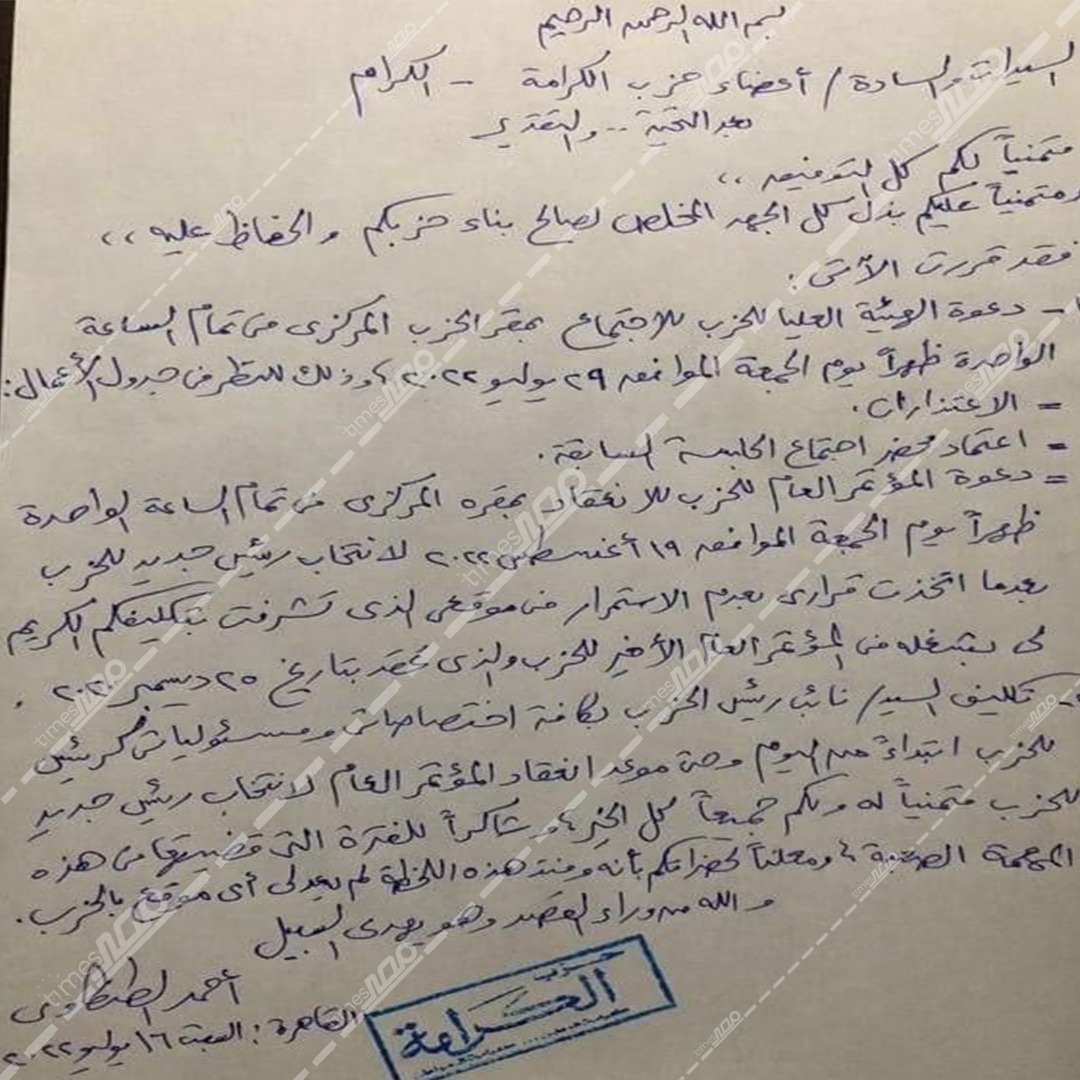 بسم الله الرحمن الرحيم
السيدات والسادة / أعضاء حزب الكرامة - الكرام
بعد التحية .. والتقدير
متمنياً لكم كل التوفيق ،،
ومتمنياً عليكم بذل كل الجهد المخلص لصالح بناء حزبكم والحفاظ عليه ،،
فقد قررت الآتى :
١- دعوة الهيئة العليا للحزب للاجتماع بمقر الحزب المركزى فى تمام الساعة
الواحدة ظهراً يوم الجمعة الموافق ٢٩ يوليو ٢٠٢٢ ، وذلك للنظر فى جدول الأعمال :
= الاعتذارات .
= اعتماد محضر اجتماع الجلسة السابقة .
= دعوة المؤتمر العام للحزب للانعقاد بمقره المركزى فى تمام الساعة الواحدة
ظهراً يوم الجمعة الموافق ١٩ أغسطس ٢٠٢٢ لانتخاب رئيس جديد للحزب
بعدما اتخذت قرارى بعدم الاستمرار فى موقعى الذى تشرفت بتكليفكم الكريم
لى بشغله فى المؤتمر العام الأخير للحزب والذى عقد بتاريخ ٢٥ ديسمبر ٢٠٢٠ .
٢- تكليف السيد / نائب رئيس الحزب بكافة اختصاصاتى ومسئولياتى كرئيس
للحزب ابتداءً من اليوم وحتى موعد انعقاد المؤتمر العام لانتخاب رئيس جديد
للحزب متمنياً له ولكم جميعاً كل الخير ، وشاكراً للفترة التى قضيتها فى هذه
المهمة الصعبة ، ومعلناً لحضراتكم بأنه ومنذ هذه اللحظة لم يعد لى أى موقع بالحزب .
والله من وراء القصد وهو يهدى السبيل
أحمد الطنطاوى
القاهرة : السبت ١٦ يوليو ٢٠٢٢
حزب
الكرامة